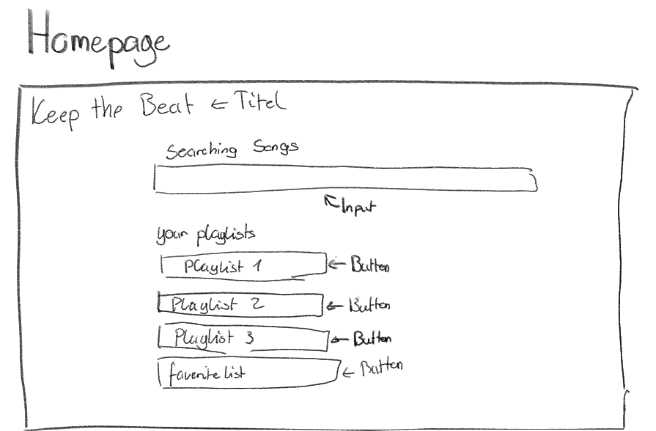 Homepage
Keep the Beat ← Titel
Searching Songs
Input
your playlists
Playlist 1 ← Button
Playlist 2 ← Button
Playlist 3 ← Button
favorite list ← Button